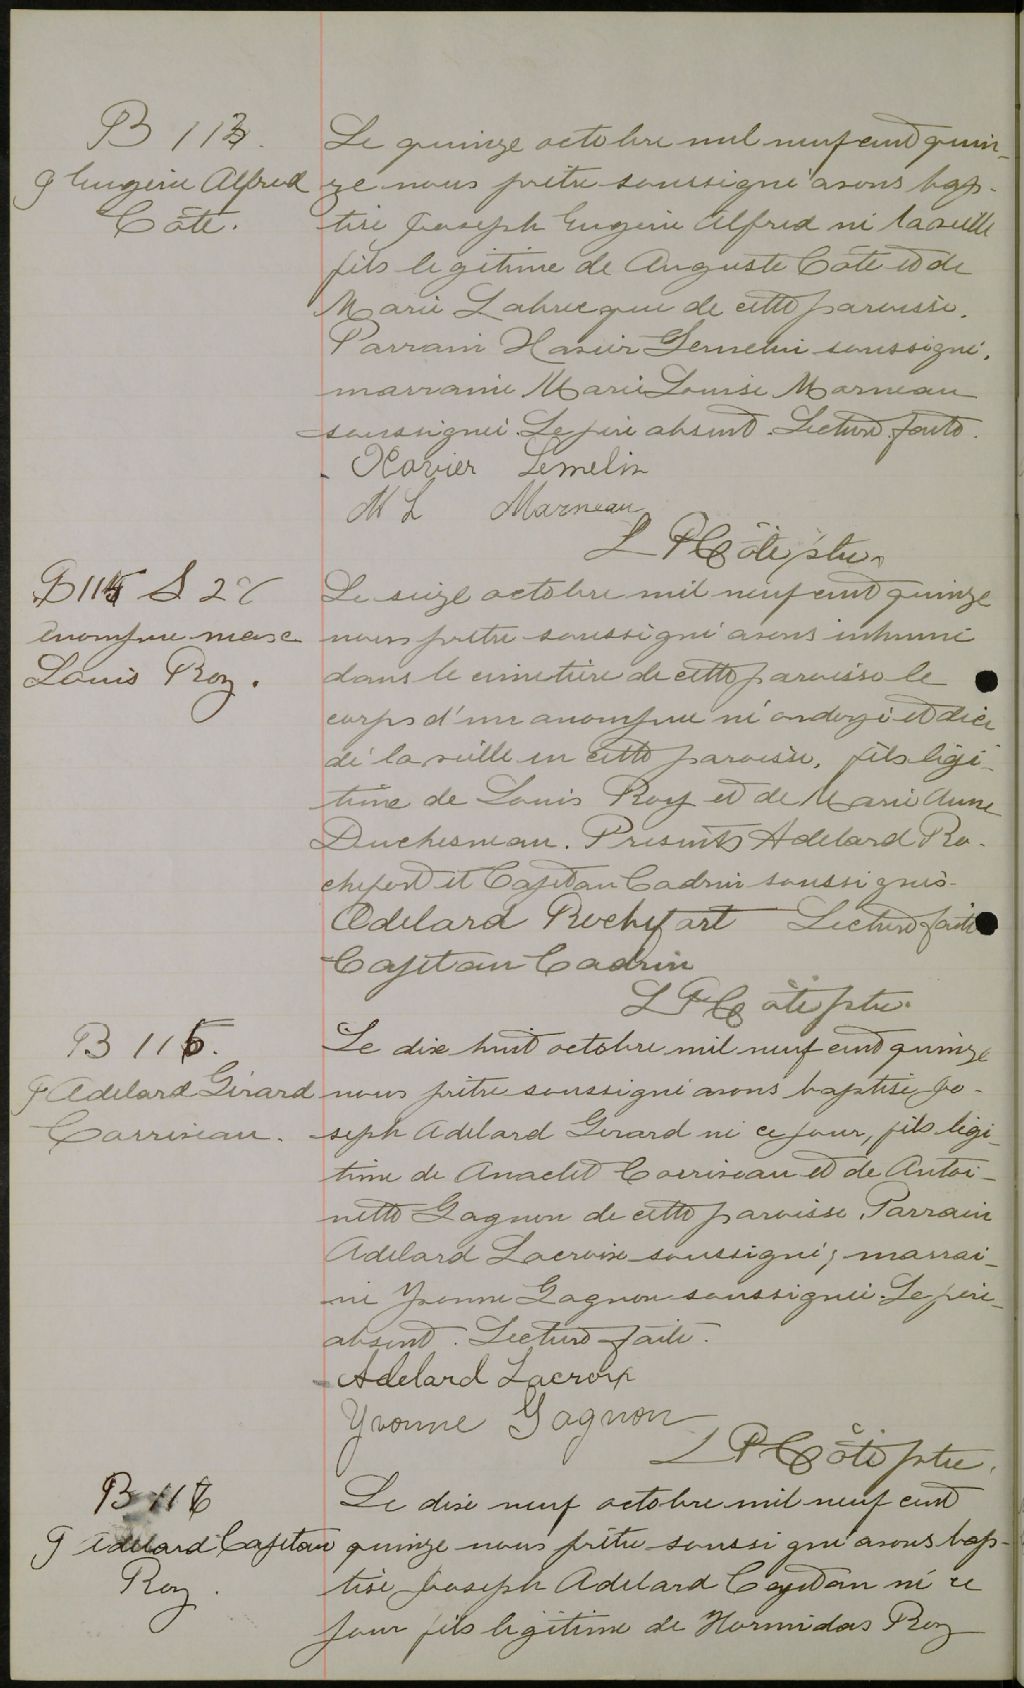 B 113.
J Eugène Alfred
Côté.
Le quinze octobre mil neuf cent quin-
ze nous prêtre soussigné avons bap-
tisé Joseph Eugène Alfred né la veille
fils légitime de Auguste Côté et de
Marie Labrecque de cette paroisse.
Parrain Xavier Lemelin soussigné,
marraine Marie Louise Morneau
soussignée. Le père absent. Lecture faite.
Xavier Lemelin
M L Marneau
L P Côté ptre.
B 115 S 27
anonyme masc
Louis Roy.
Le seize octobre mil neuf cent quinze
nous prêtre soussigné avons inhumé
dans le cimetière de cette paroisse le
corps d'un anonyme né ondoyé et décé
dé la veille en cette paroisse, fils légi-
time de Louis Roy et de Marie Anne
Duchesneau. Présents Adelard Ro-
chefort et Capitan Cadrin soussignés.
Adelard Rochefort Lecture faite
Capitan Cadrin
L P Côté ptre.
B 115.
J Adelard Gérard
Corriveau.
Le dix huit octobre mil neuf cent quinze
nous prêtre soussigné avons baptisé Jo-
seph Adelard Gérard né ce jour, fils légi-
time de Anaclet Corriveau et de Antoi-
nette Gagnon de cette paroisse. Parrain
Adelard Lacroix soussigné; marrai-
ne Yvonne Gagnon soussignée. Le père
absent. Lecture faite.
Adelard Lacroix
Yvonne Gagnon
L P Côté ptre.
B 116
J Adelard Capitan
Roy.
Le dix neuf octobre mil neuf cent
quinze nous prêtre soussigné avons bap-
tisé Joseph Adelard Capitan né ce
jour fils légitime de Hormidas Roy